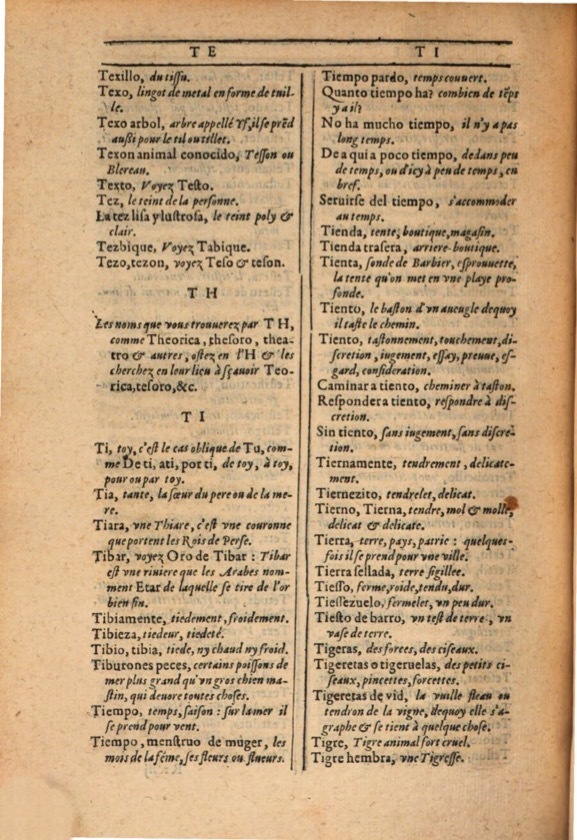 TE
TI
Texillo, du tissu.
Texo, lingot de metal en forme de tuil-
le.
Texo arbol, arbre appellé Yf, il se prēd
außi pour le til ou tillet.
Texon animal conocido, Tesson ou
Blereau.
Texto, Voyez Testo.
Tez, le teint de la personne.
La tez lisa y lustrosa, le teint poly &
clair.
Tezbique, Voyez Tabique.
Tezo, tezon, voyez Teso & teson.
TH
Les noms que vous trouuerez par TH,
comme Theorica, thesoro, thea-
tro & autres, ostez en l'H & les
cherchez en leur lieu à sçauoir Teo-
rica, tesoro, &c.
TI
Ti, toy, c'est le cas oblique de Tu, com-
me De ti, a ti, por ti, de toy, à toy,
pour ou par toy.
Tia, tante, la sœur du pere ou de la me-
re.
Tiara, vne Thiare, c'est vne couronne
que portent les Rois de Perse.
Tibar, voyez Oro de Tibar : Tibar
est vne riuiere que les Arabes nom-
ment Etar de laquelle se tire de l'or
bien fin.
Tibiamente, tiedement, froidement.
Tibieza, tiedeur, tiedeté.
Tibio, tibia, tiede, ny chaud ny froid.
Tiburones peces, certains poissons de
mer plus grand qu'vn gros chien ma-
stin, qui deuore toutes choses.
Tiempo, temps, saison : sur la mer il
se prend pour vent.
Tiempo, menstruo de muger, les
mois de la féme, ses fleurs ou flueurs.
Tiempo pardo, temps couuert.
Quanto tiempo ha? combien de tēps
y a il?
No ha mucho tiempo, il n'y a pas
long temps.
De a qui a poco tiempo, de dans peu
de temps, ou d'icy à peu de temps, en
bref.
Seruirse del tiempo, s'accommoder
au temps.
Tienda, tente, boutique, magasin.
Tienda trasera, arriere-boutique.
Tienta, sonde de Barbier, esprouuette,
la tente qu'on met en vne playe pro-
fonde.
Tiento, le baston d'vn aueugle dequoy
il taste le chemin.
Tiento, tastonnement, touchement, di-
scretion, iugement, essay, preuue, es-
gard, consideration.
Caminar a tiento, cheminer à taston.
Responder a tiento, respondre à dis-
cretion.
Sin tiento, sans iugement, sans discre-
tion.
Tiernamente, tendrement, delicate-
ment.
Tiernezito, tendrelet, delicat.
Tierno, Tierna, tendre, mol & molle,
delicat & delicate.
Tierra, terre, pays, patrie : quelques-
fois il se prend pour vne ville.
Tierra sellada, terre sigillee.
Tiesso, ferme, roide, tendu, dur.
Tiessezuelo, fermelet, vn peu dur.
Tiesto de barro, vn test de terre, vn
vase de terre.
Tigeras, des forces, des ciseaux.
Tigeretas o tigeruelas, des petits ci-
seaux, pincettes, forcettes.
Tigeretas de vid, la vuille fleau ou
tendron de la vigne, dequoy elle s'a-
graphe & se tient à quelque chose.
Tigre, Tigre animal fort cruel.
Tigre hembra, vne Tigresse.